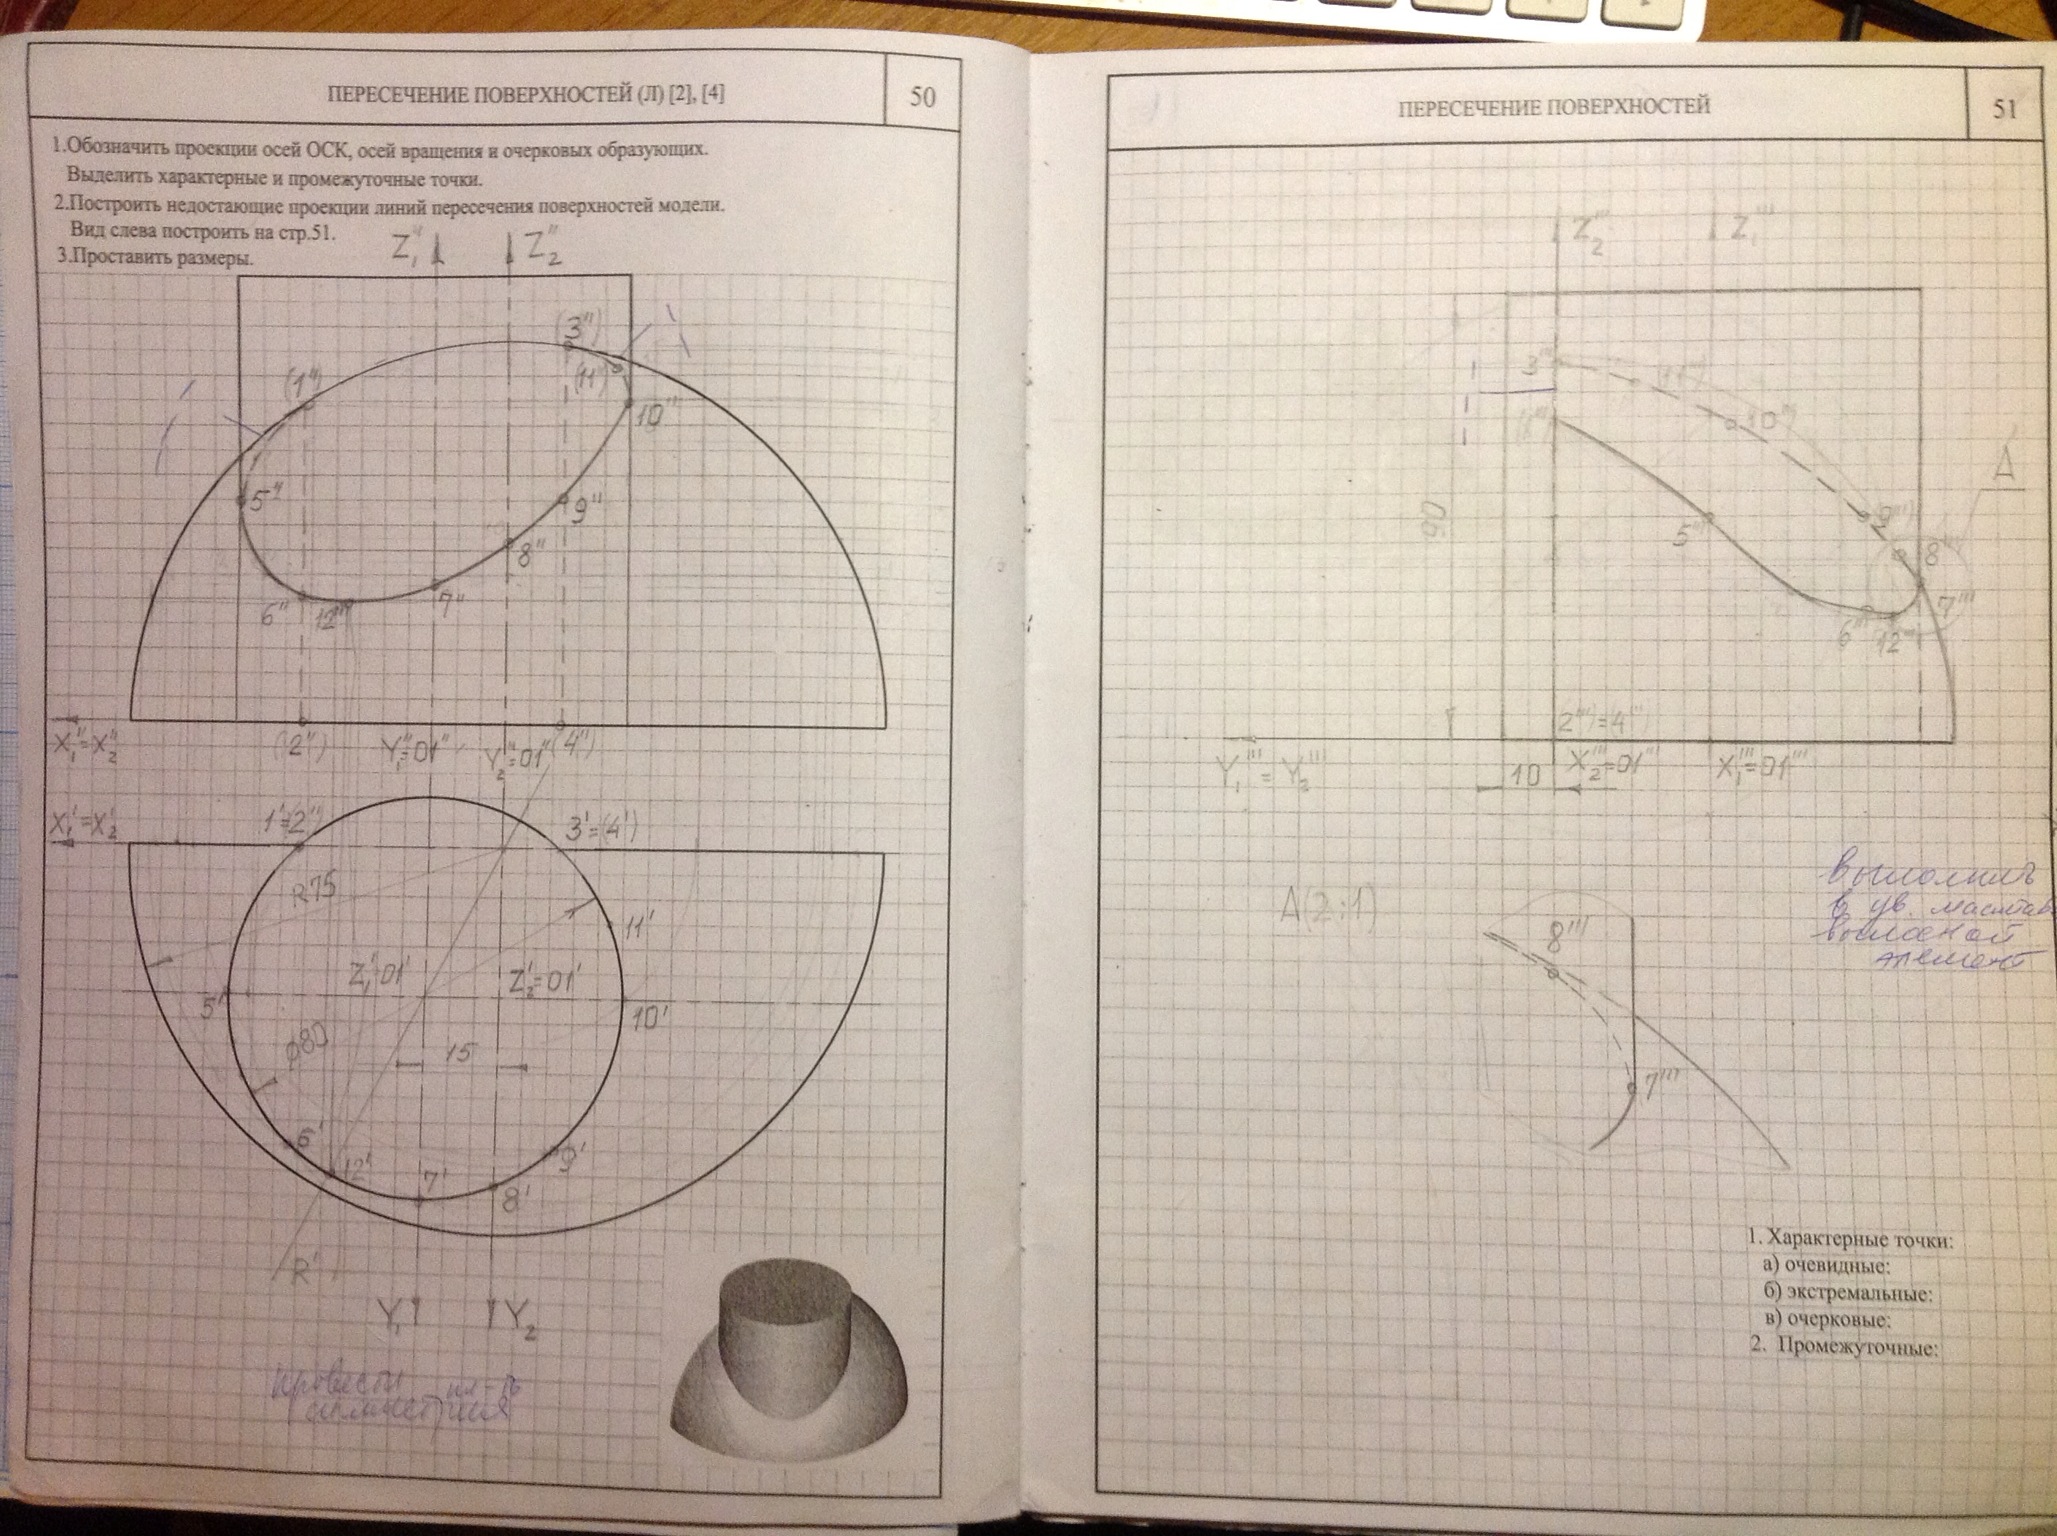 ПЕРЕСЕЧЕНИЕ ПОВЕРХНОСТЕЙ (Л) [2], [4]
50
1.Обозначить проекции осей ОСК, осей вращения и очерковых образующих.
Выделить характерные и промежуточные точки.
2.Построить недостающие проекции линий пересечения поверхностей модели.
Вид слева построить на стр.51.
3.Проставить размеры.
Z₁'' Z₂''
(3'')
(1'') (11'')
10''
5'' 9''
8''
6'' 12'' 7''
X₁''=X₂'' (2'') Y₁''=01'' Y₂''=01'' (4'')
X₁'=X₂' 1'=(2'') 3'=(4')
R75
11'
Z₁'=01' Z₂'=01'
5' 10'
⌀80 15
6' 9'
12' 7' 8'
R'
Y₁ Y₂
провести пл-ть
симметрии
ПЕРЕСЕЧЕНИЕ ПОВЕРХНОСТЕЙ
51
Z₂''' Z₁'''
3'''
10'''
A
90
5''' 8'''
7'''
6''' 12'''
2'''=(4''')
Y₁'''=Y₂''' 10 X₂'''=01''' X₁'''=01'''
A(2:1)
выполнить
в ув. масштабе
выносной
элемент
8'''
7'''
1. Характерные точки:
а) очевидные:
б) экстремальные:
в) очерковые:
2. Промежуточные: